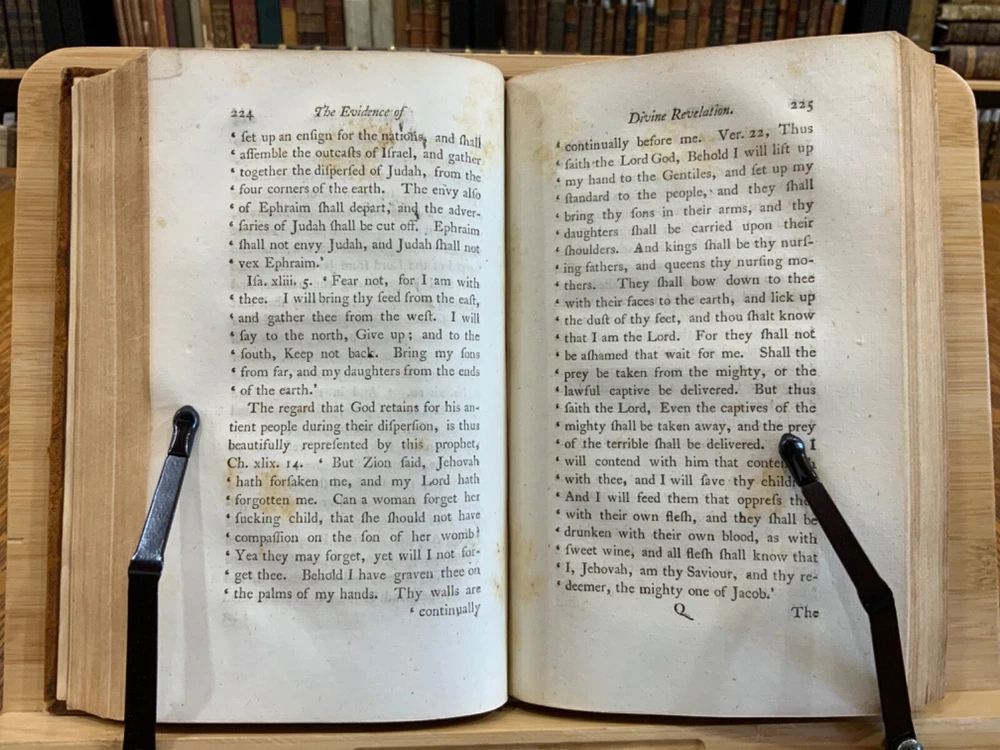 224 The Evidence of
‘ ſet up an enſign for the nations, and ſhall
‘ aſſemble the outcaſts of Iſrael, and gather
‘ together the diſperſed of Judah, from the
‘ four corners of the earth. The envy alſo
‘ of Ephraim ſhall depart, and the adver-
‘ ſaries of Judah ſhall be cut off. Ephraim
‘ ſhall not envy Judah, and Judah ſhall not
‘ vex Ephraim.’
Iſa. xliii. 5. ‘ Fear not, for I am with
‘ thee. I will bring thy ſeed from the eaſt,
‘ and gather thee from the weſt. I will
‘ ſay to the north, Give up; and to the
‘ ſouth, Keep not back. Bring my ſons
‘ from far, and my daughters from the ends
‘ of the earth.’
The regard that God retains for his an-
tient people during their diſperſion, is thus
beautifully repreſented by this prophet,
Ch. xlix. 14. ‘ But Zion ſaid, Jehovah
‘ hath forſaken me, and my Lord hath
‘ forgotten me. Can a woman forget her
‘ ſucking child, that ſhe ſhould not have
‘ compaſſion on the ſon of her womb?
‘ Yea they may forget, yet will I not for-
‘ get thee. Behold I have graven thee on
‘ the palms of my hands. Thy walls are
‘ continually
Divine Revelation. 225
‘ continually before me. Ver. 22, Thus
‘ ſaith the Lord God, Behold I will lift up
‘ my hand to the Gentiles, and ſet up my
‘ ſtandard to the people, and they ſhall
‘ bring thy ſons in their arms, and thy
‘ daughters ſhall be carried upon their
‘ ſhoulders. And kings ſhall be thy nurſ-
‘ ing fathers, and queens thy nurſing mo-
‘ thers. They ſhall bow down to thee
‘ with their faces to the earth, and lick up
‘ the duſt of thy feet, and thou ſhalt know
‘ that I am the Lord. For they ſhall not
‘ be aſhamed that wait for me. Shall the
‘ prey be taken from the mighty, or the
‘ lawful captive be delivered. But thus
‘ ſaith the Lord, Even the captives of the
‘ mighty ſhall be taken away, and the prey
‘ of the terrible ſhall be delivered. I
‘ will contend with him that
‘ with thee, and I will ſave thy
‘ And I will feed them that oppreſs
‘ with their own fleſh, and they ſhall be
‘ drunken with their own blood, as with
‘ ſweet wine, and all fleſh ſhall know that
‘ I, Jehovah, am thy Saviour, and thy re-
‘ deemer, the mighty one of Jacob.’
Q The